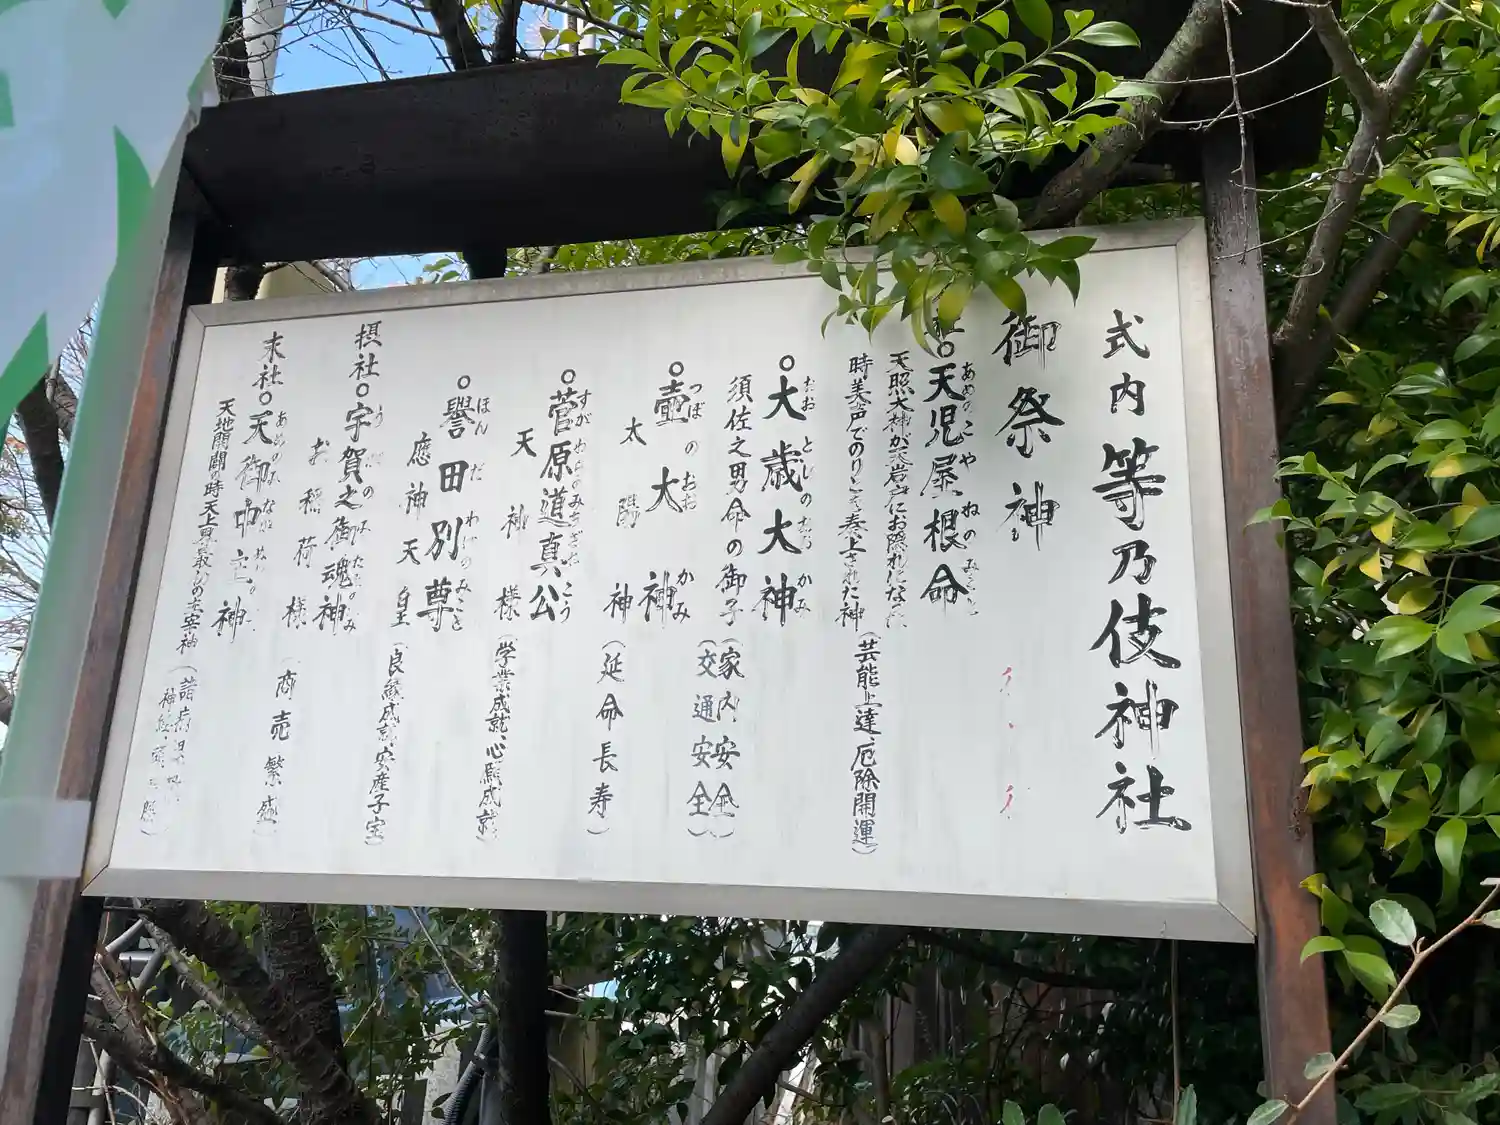 式内 等乃伎神社
御祭神
○天児屋根命
天照大神が岩戸にお隠れになった
時美声でのりとを奏上された神
(芸能上達、厄除開運)
○大歳大神
須佐之男命の御子
(家内安全
交通安全)
○壷大神
太陽神
(延命長寿)
○菅原道真公
天神様
(学業成就、心願成就)
○誉田別尊
應神天皇
(良縁成就、安産子宝)
摂社○宇賀之御魂神
お稲荷様
(商売繁盛)
末社○天御中主神
天地開闢の時天上界最初の主宰神